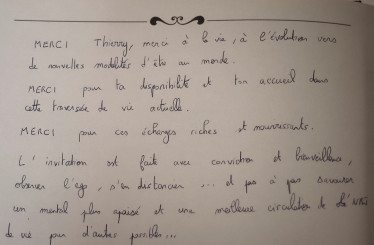 MERCI Thierry, merci à la vie, à l'évolution vers
de nouvelles modalités d'être au monde.
MERCI pour ta disponibilité et ton accueil dans
cette traversée de vie actuelle.
MERCI pour ces échanges riches et nourrissants.
L'invitation est faite avec conviction et bienveillance,
observer l'ego, s'en distancier ... et pas à pas savourer
un mental plus apaisé et une meilleure circulation de
de vie pour d'autres possibles...